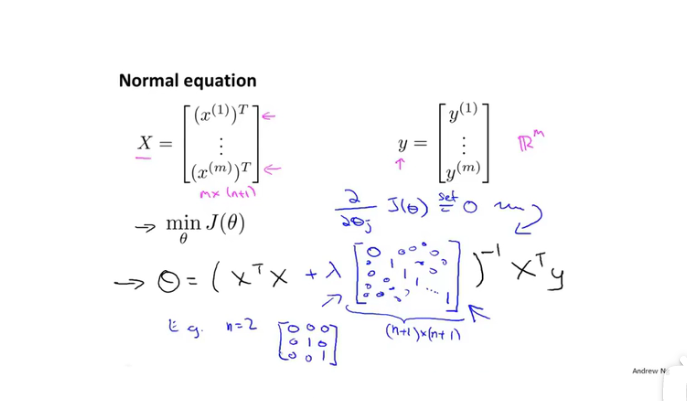 Normal equation
X = [ (x^(1))^T ⋮ (x^(m))^T ] ← ←
m × (n+1)
y = [ y^(1) ⋮ y^(m) ] ℝ^m
↑
∂/∂θ_j J(θ) set = 0
→ min_θ J(θ)
→ θ = ( X^T X + λ [ 0 0 0 0 0 1 0 1 ⋱ 1 ] )^-1 X^T y
(n+1)×(n+1)
E.g. n=2 [ 0 0 0
0 1 0
0 0 1 ]
Andrew N